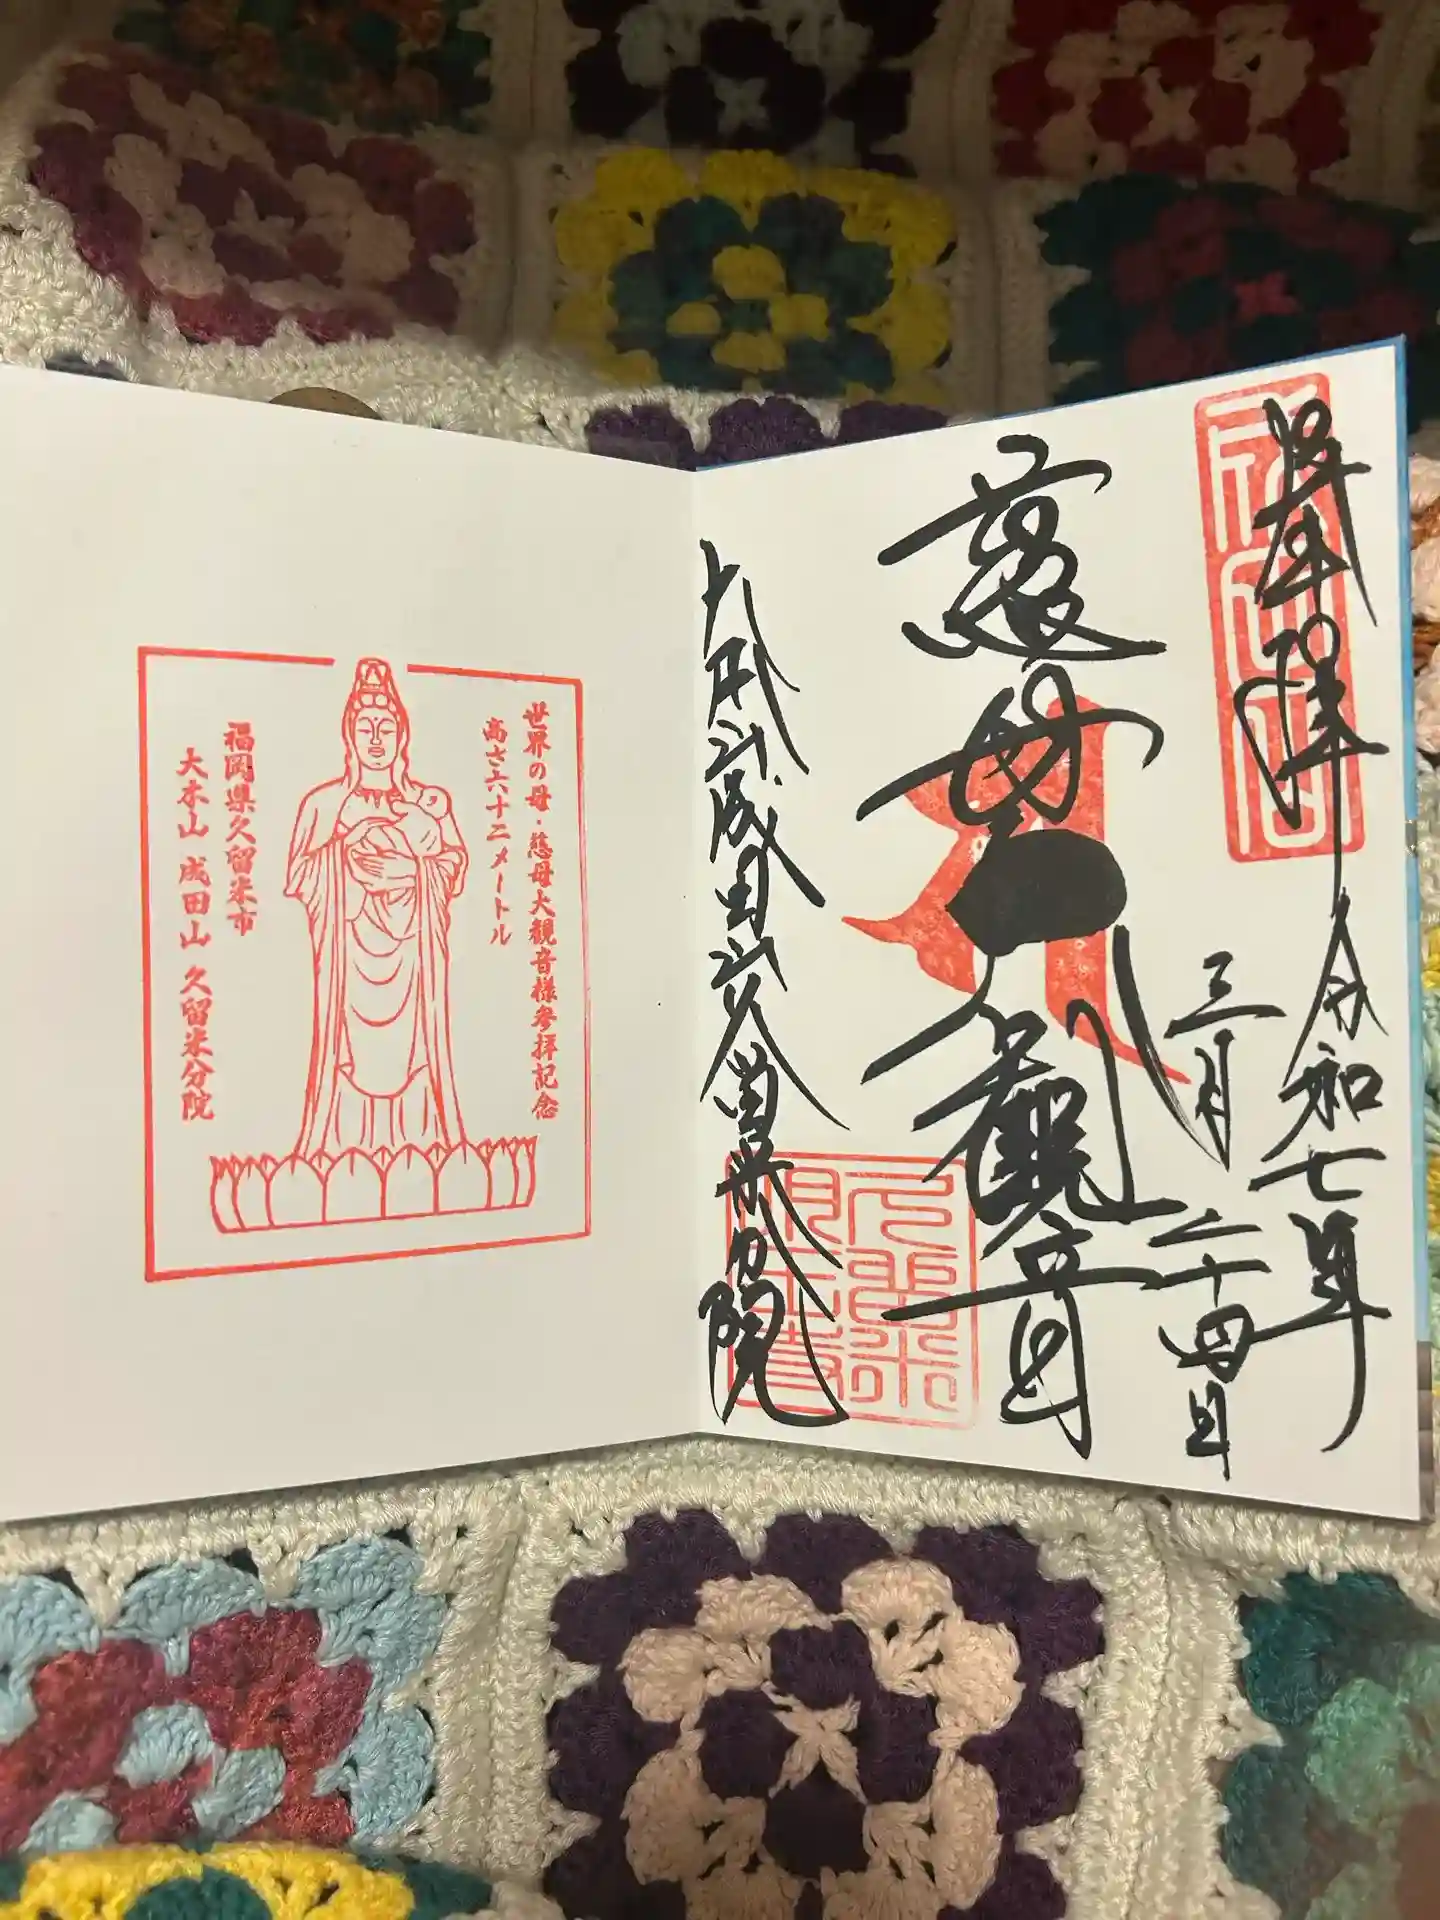 奉拝
令和七年
三月二十四日
慈母大観音
大本山成田山久留米分院
世界の母・慈母大観音様参拝記念
高さ六十二メートル
福岡県久留米市
大本山 成田山 久留米分院